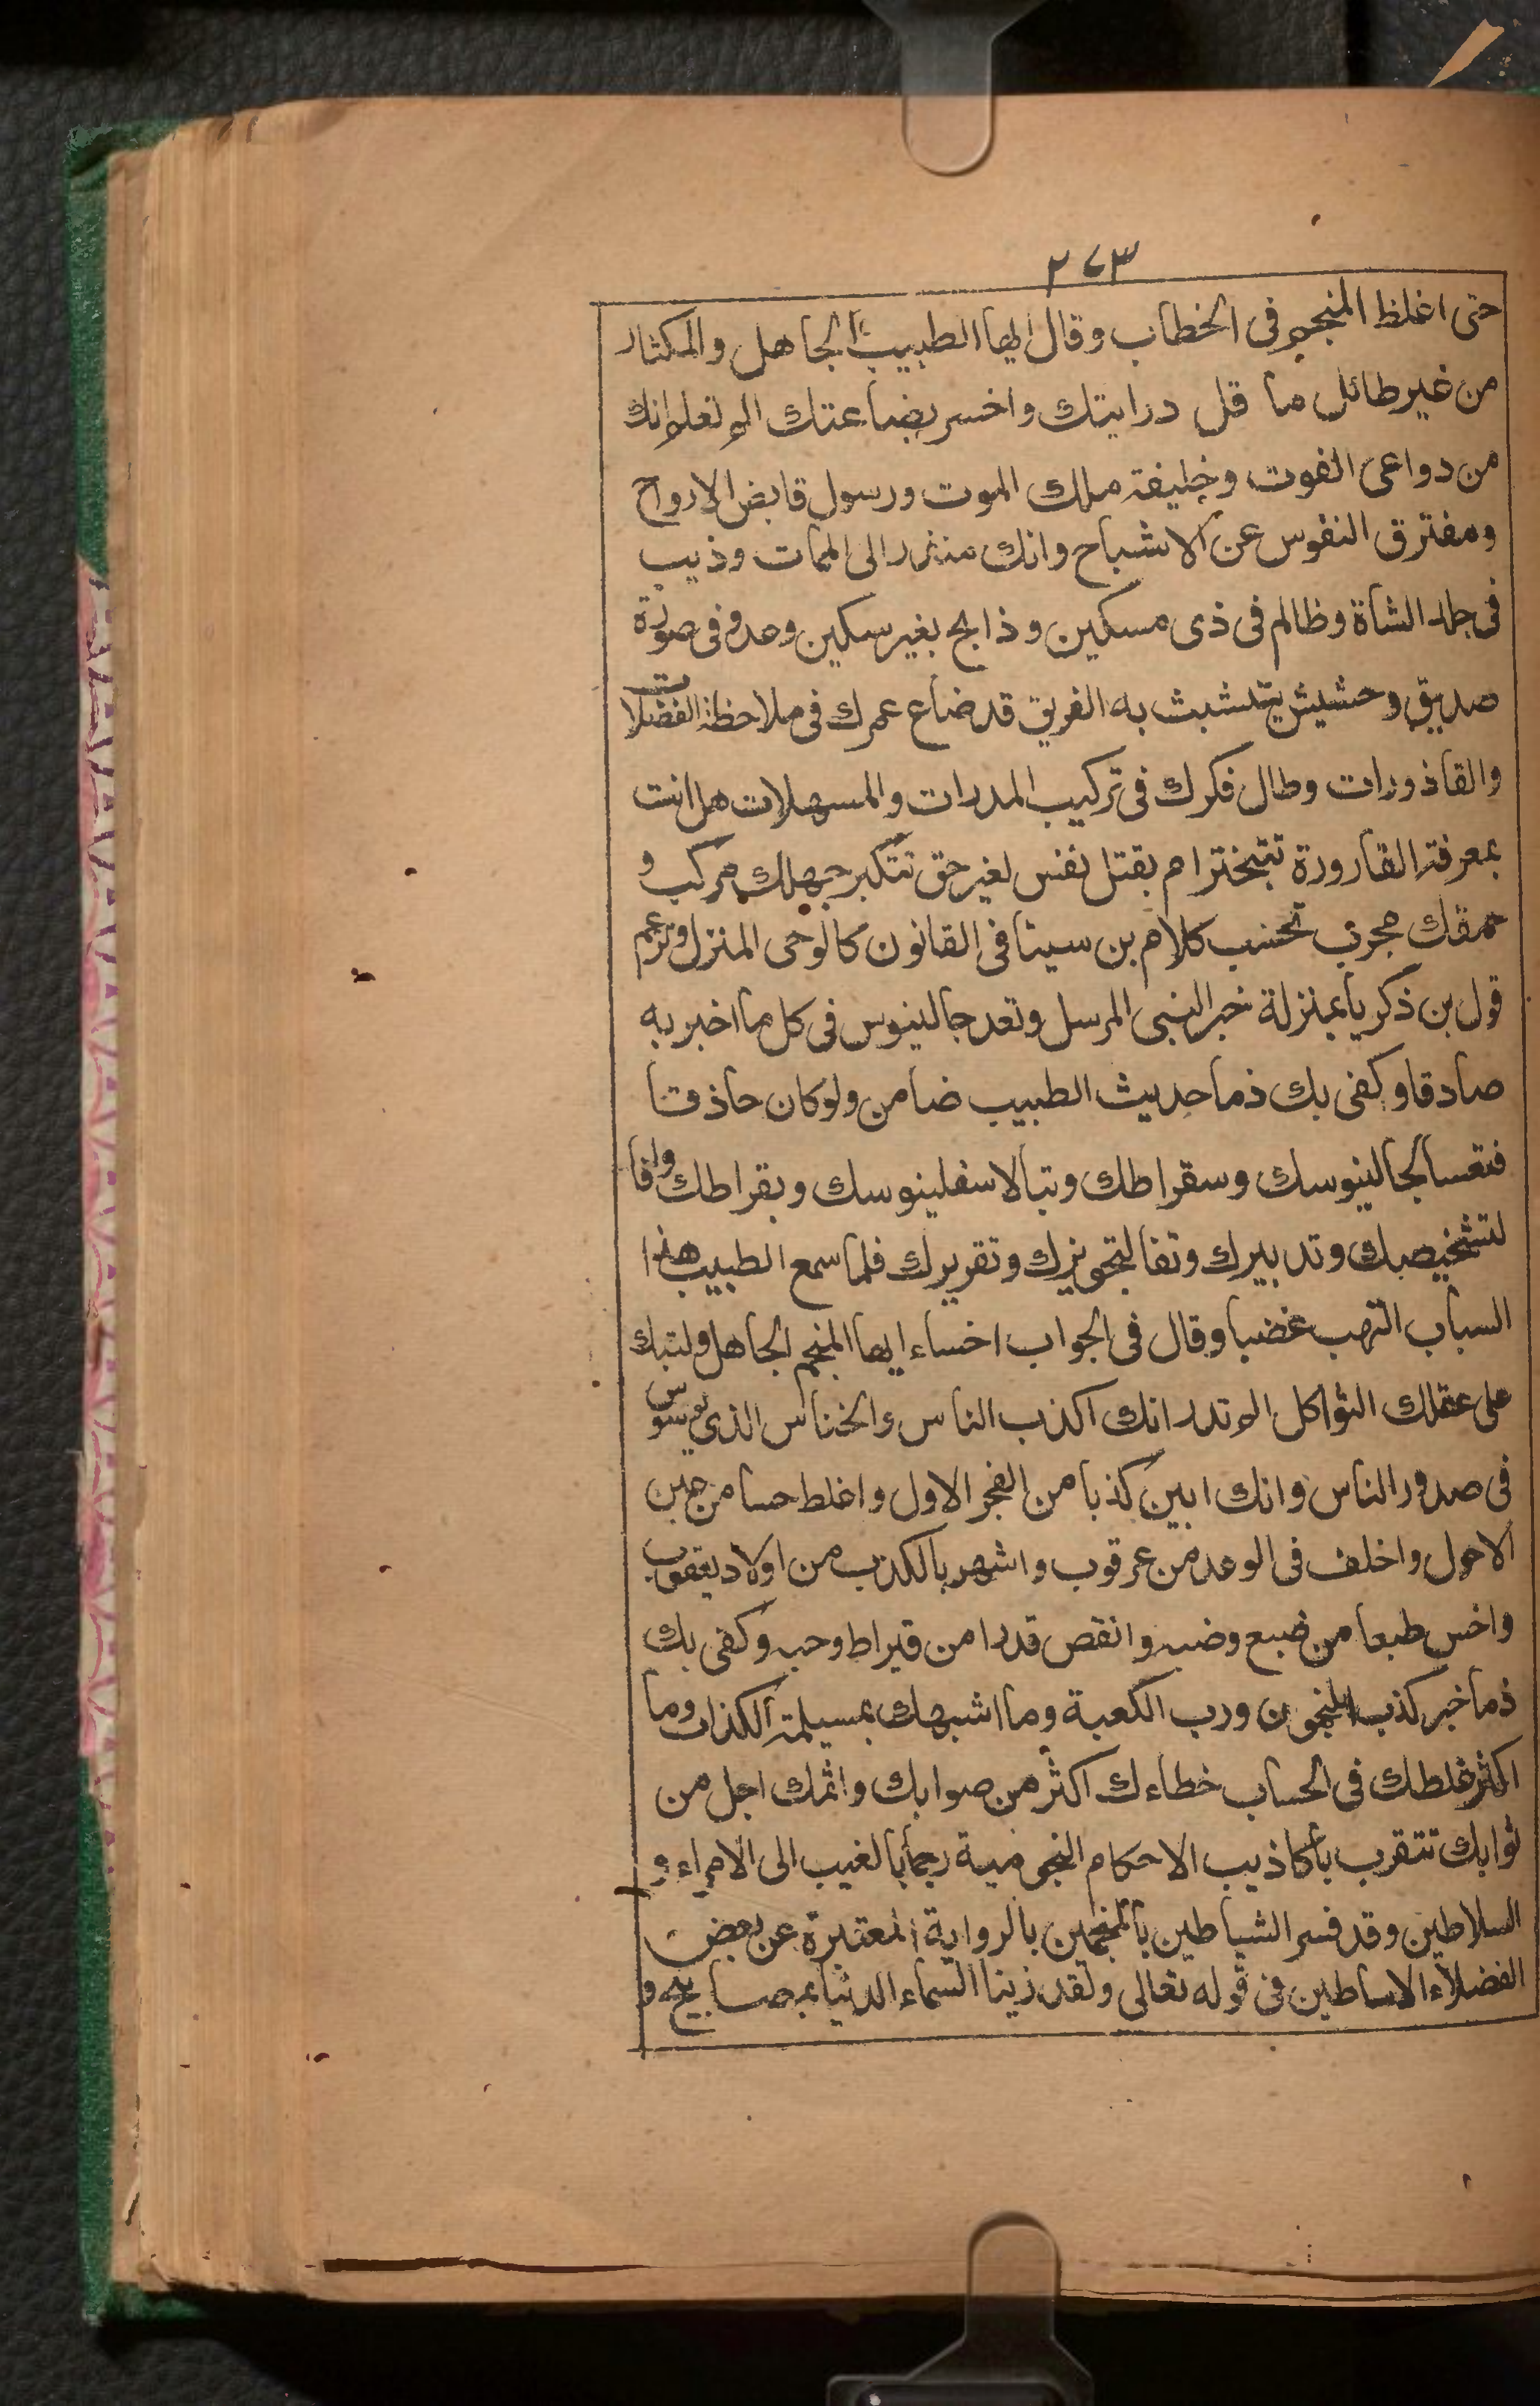 ٢٧٣
حتى اغلظ المنجم فى الخطاب وقال ايها الطبيب الجاهل والمكثار
من غير طائل ما قل درايتك واخسر بضاعتك الم تعلم انك
من دواعى الفوت وخليفة ملك الموت ورسول قابض الارواح
ومفترق النفوس عن الاشباح وانك منذر الى الممات وذيب
فى جلد الشاة وظالم فى ذى مسكين وذابح بغير سكين وعدو فى صورة
صديق وحشيش يتشبث به الغريق قد ضاع عمرك فى ملاحظة الفضلات
والقاذورات وطال فكرك فى تركيب المدرات والمسهلات هل انت
بمعرفة القارورة تتبختر ام بقتل نفس لغير حق تتكبر جهلك مركب و
حمقك مجرب تحسب كلام بن سينا فى القانون كالوحى المنزل وتزعم
قول بن ذكريا بمنزلة خبر النبى المرسل وتعد جالينوس فى كل ما اخبر به
صادقا وكفى بك ذما حديث الطبيب ضامن ولو كان حاذقا
فتعسا لجالينوسك وسقراطك وتبا لاسفلينوسك وبقراطك وافا
لتشخيصك وتدبيرك وتفا لتجويزك وتقريرك فلما سمع الطبيب هذا
السباب التهب غضبا وقال فى الجواب اخساء ايها المنجم الجاهل ولتبك
على عقلك الثواكل الم تدر انك اكذب الناس والخناس الذى يوسوس
فى صدور الناس وانك ابين كذبا من الفجر الاول واغلط حسا من عين
الاحول واخلف فى الوعد من عرقوب واشهر بالكذب من اولاد يعقوب
واخس طبعا من ضبع وضب وانقص قدرا من قيراط وحبه وكفى بك
ذما خبر كذب المنجمون ورب الكعبة وما اشبهك بمسيلمة الكذاب وما
اكثر غلطك فى الحساب خطاءك اكثر من صوابك واثمك اجل من
ثوابك تتقرب باكاذيب الاحكام النجومية رجما بالغيب الى الامراء و
السلاطين وقد فسر الشياطين بالمنجمين بالرواية المعتبرة عن بعض
الفضلاء الاساطين فى قوله تعالى ولقد زينا السماء الدنيا بمصابيح و